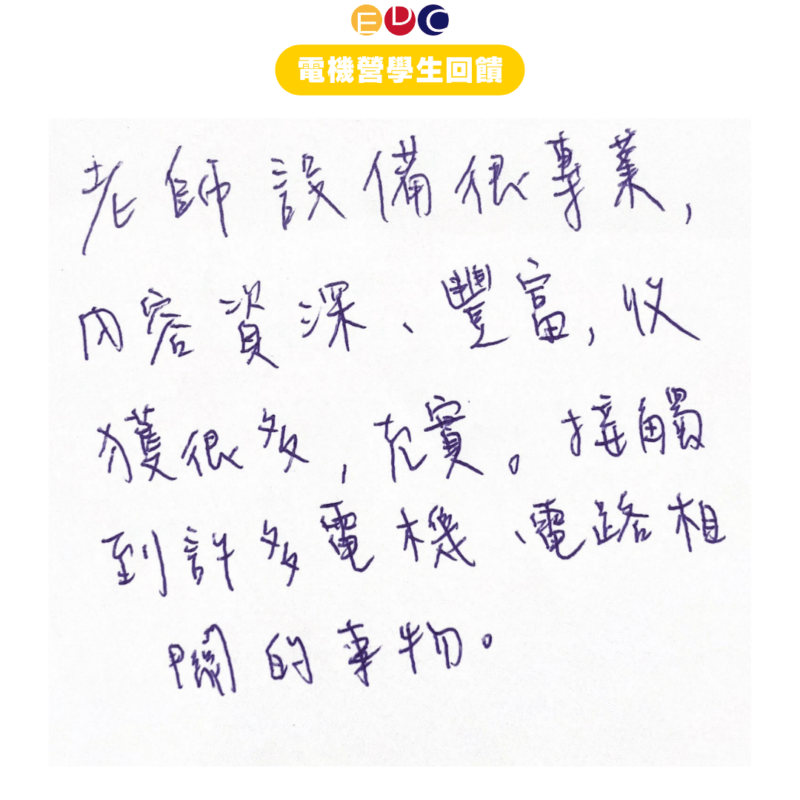 EDC
電機營學生回饋
老師設備很專業，
內容資深、豐富，收
獲很多，充實。接觸
到許多電機、電路相
關的事物。